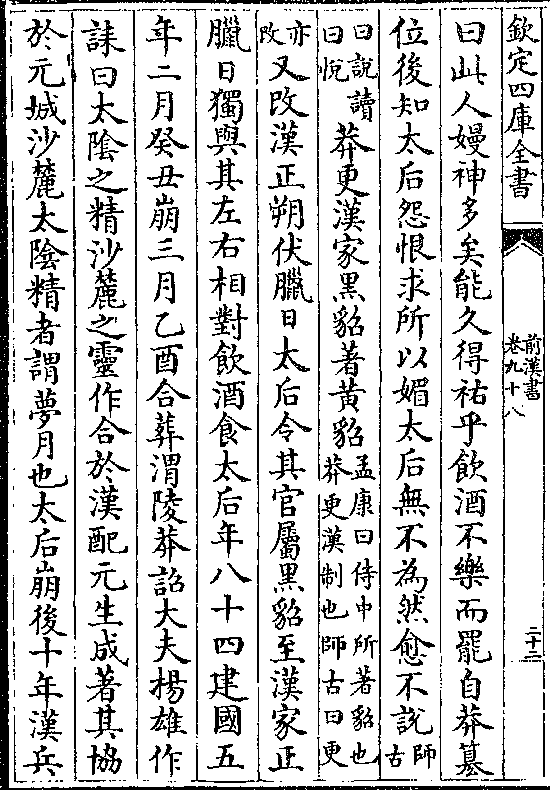 欽定四庫全書
前漢書
卷九十八
二十三
曰此人嫚神多矣能久得祐乎飲酒不樂而罷自莽篡
位後知太后怨恨求所以媚太后無不為然愈不說師古
曰說讀曰悅莽更漢家黑貂著黄貂孟康曰侍中所著貂也莽更漢制也師古曰更
亦改又改漢正朔伏臘日太后令其官屬黑貂至漢家正
臘日獨與其左右相對飲酒食太后年八十四建國五
年二月癸丑崩三月乙酉合葬渭陵莽詔大夫楊雄作
誄曰太陰之精沙麓之靈作合於漢配元生成著其協
於元城沙麓太陰精者謂夢月也太后崩後十年漢兵